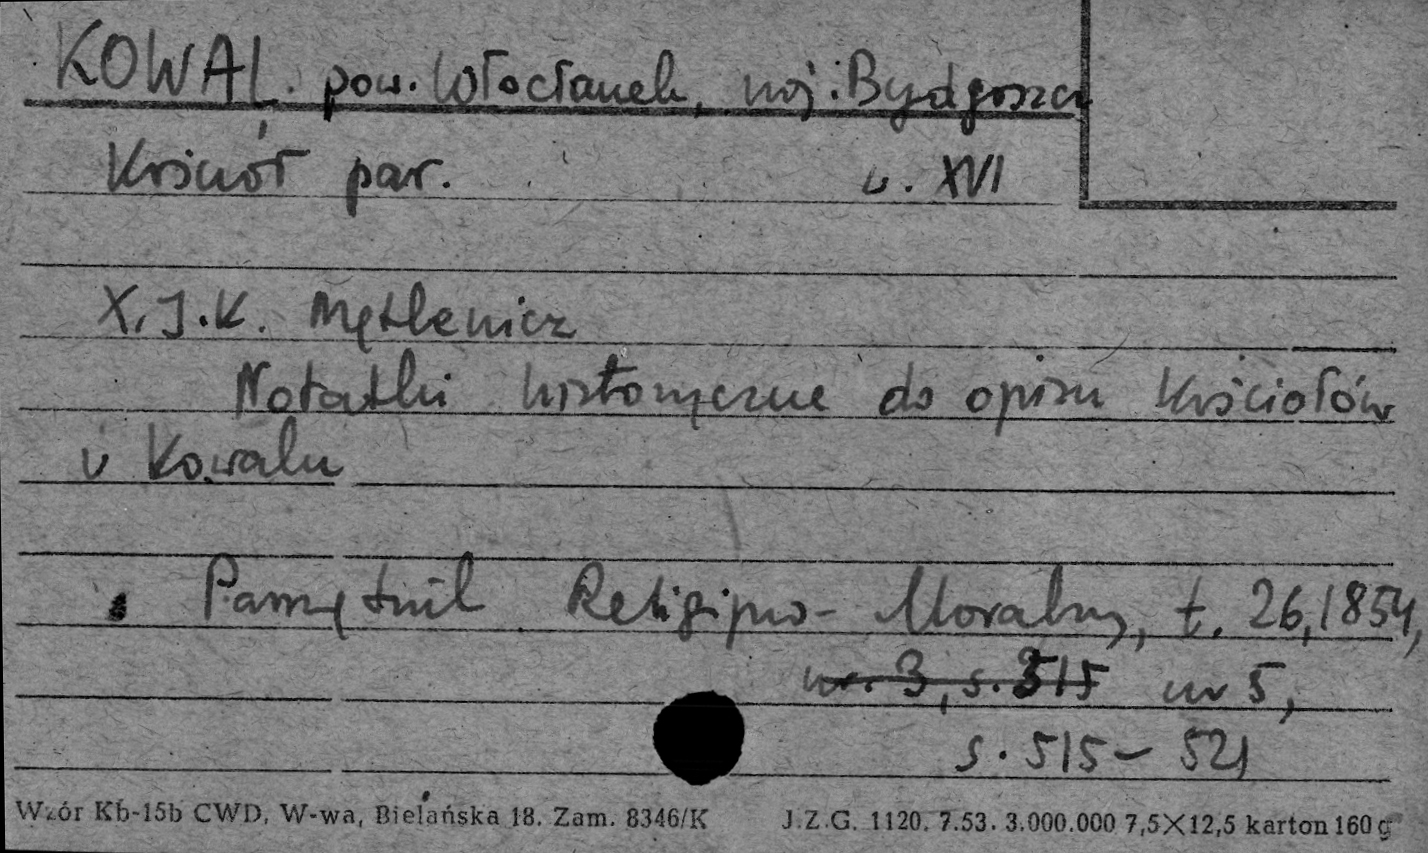 KOWAL pow. Włocławek, woj. Bydgoszcz
Kościół par. w. XVI
X. J. K. Mętlewicz
Notatki historyczne do opisu Kościołów
w Kowalu
Pamiętnik Religijno-Moralny, t. 26, 1854,
nr. 3, s. 515 nr 5,
s. 515-521
Wzór Kb-15b CWD, W-wa, Bielańska 18. Zam. 8346/K J.Z.G. 1120. 7.53. 3.000.000 7,5×12,5 karton 160 g